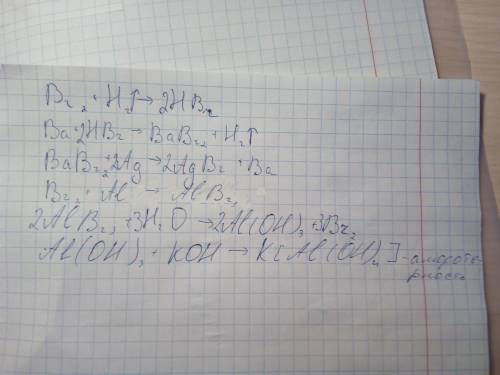 Br₂ + H₂↑ → 2HBr
Ba+2HBr → BaBr₂ + H₂↑
BaBr₂+2Ag → 2AgBr + Ba
Br₂ + Al → AlBr₃
2AlBr₃ +3H₂O → 2Al(OH)₃ +3Br₂
Al(OH)₃ + KOH → K[Al(OH)₄] - амфотерность